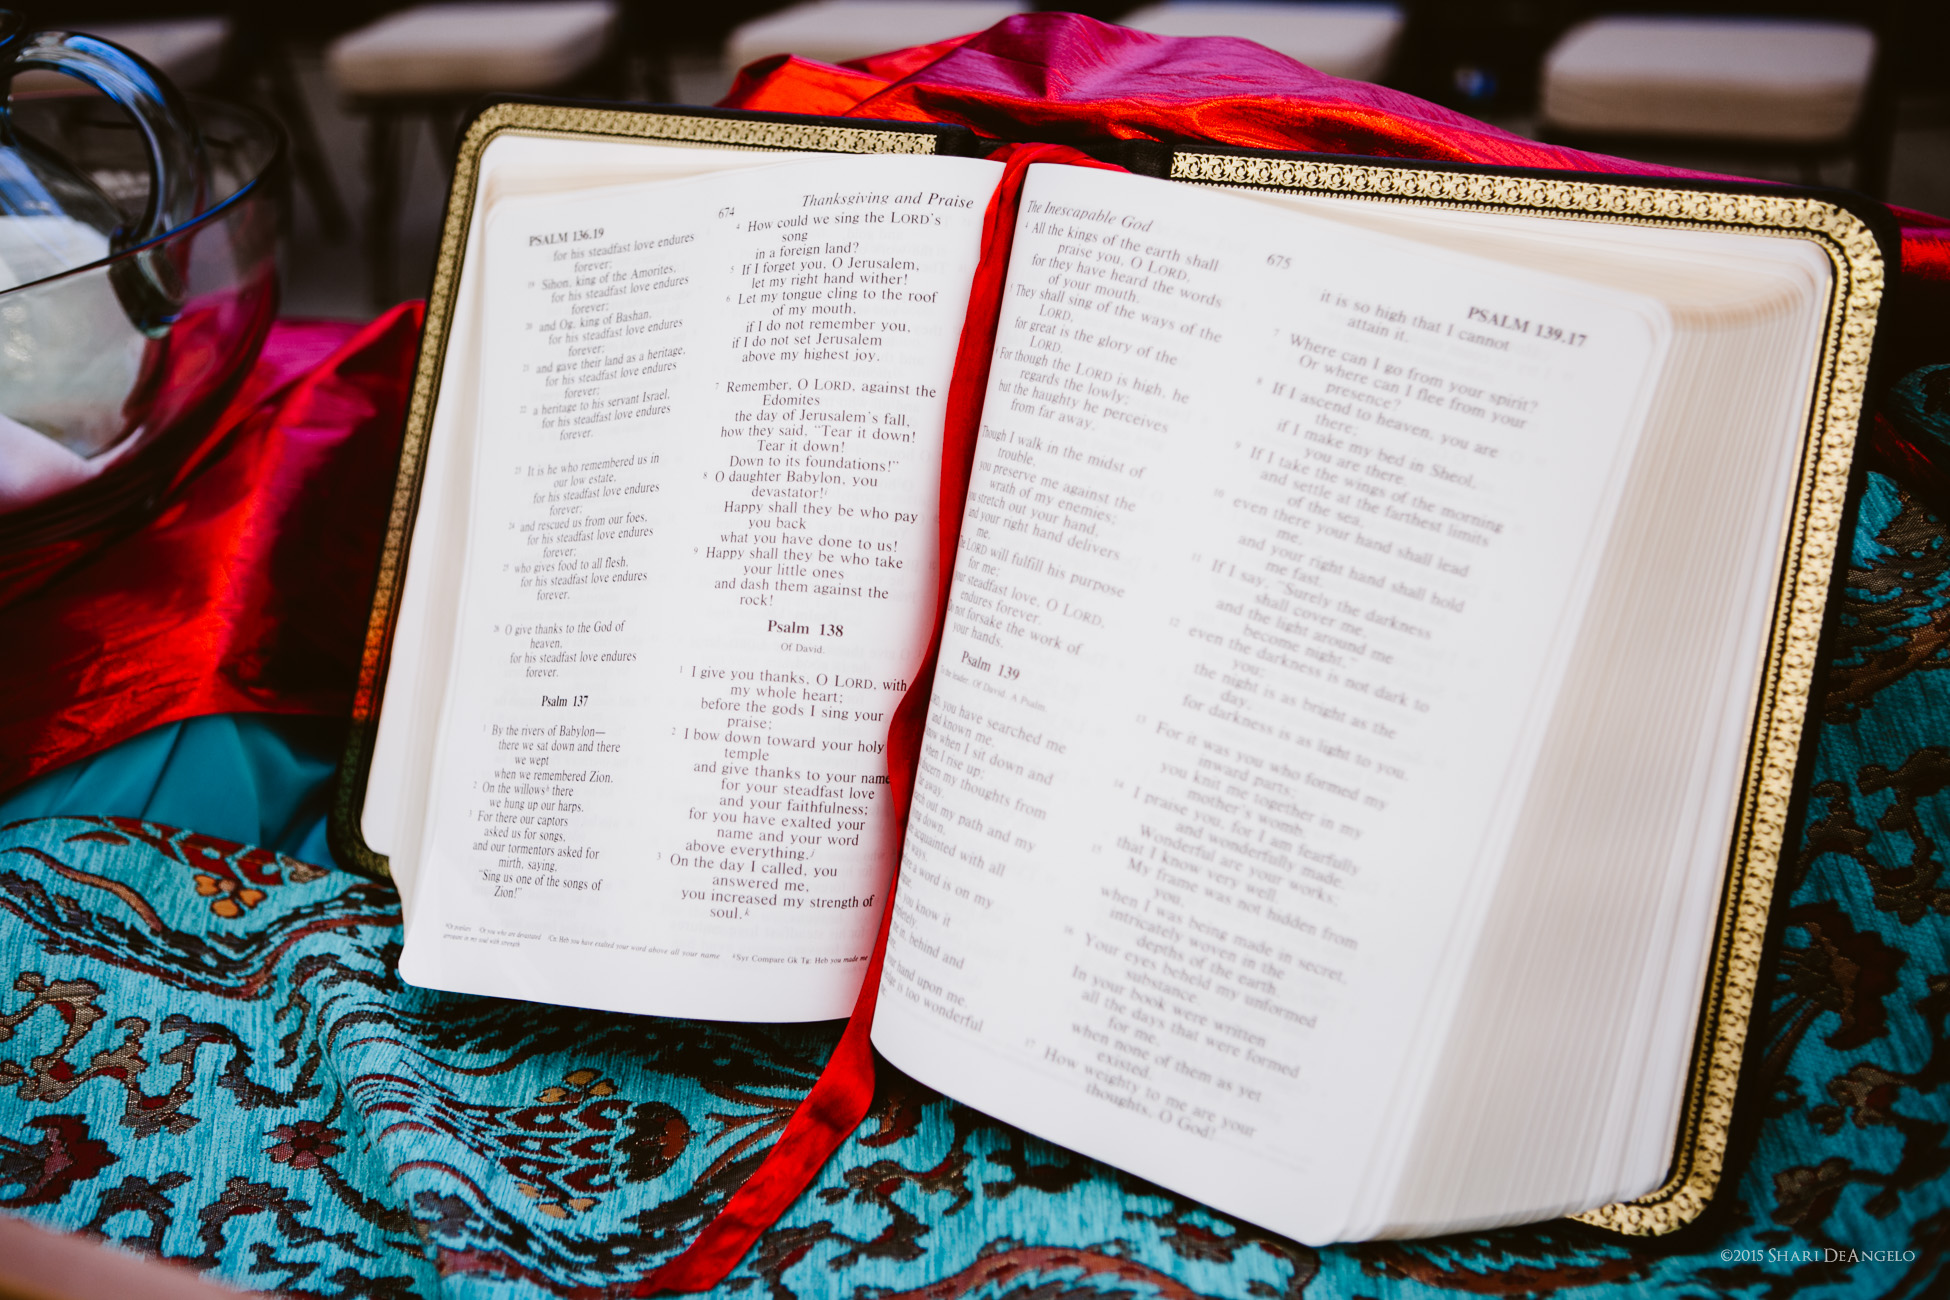 PSALM 136.19
674
Thanksgiving and Praise
for his steadfast love endures
forever;
19 Sihon, king of the Amorites,
for his steadfast love endures
forever;
20 and Og, king of Bashan,
for his steadfast love endures
forever;
21 and gave their land as a heritage,
for his steadfast love endures
forever;
22 a heritage to his servant Israel,
for his steadfast love endures
forever.
23 It is he who remembered us in
our low estate,
for his steadfast love endures
forever;
24 and rescued us from our foes,
for his steadfast love endures
forever;
25 who gives food to all flesh,
for his steadfast love endures
forever.
26 O give thanks to the God of
heaven,
for his steadfast love endures
forever.
Psalm 137
1 By the rivers of Babylon—
there we sat down and there
we wept
when we remembered Zion.
2 On the willows h there
we hung up our harps.
3 For there our captors
asked us for songs,
and our tormentors asked for
mirth, saying,
"Sing us one of the songs of
Zion!"
4 How could we sing the LORD's
song
in a foreign land?
5 If I forget you, O Jerusalem,
let my right hand wither!
6 Let my tongue cling to the roof
of my mouth,
if I do not remember you,
if I do not set Jerusalem
above my highest joy.
7 Remember, O LORD, against the
Edomites
the day of Jerusalem's fall,
how they said, "Tear it down!
Tear it down!
Down to its foundations!"
8 O daughter Babylon, you
devastator! i
Happy shall they be who pay
you back
what you have done to us!
9 Happy shall they be who take
your little ones
and dash them against the
rock!
Psalm 138
Of David.
1 I give you thanks, O LORD, with
my whole heart;
before the gods I sing your
praise;
2 I bow down toward your holy
temple
and give thanks to your name
for your steadfast love
and your faithfulness;
for you have exalted your
name and your word
above everything. j
3 On the day I called, you
answered me,
you increased my strength of
soul. k
h Or poplars i Or you who are devastated j Cn: Heb you have exalted your word above all your name k Syr Compare Gk Tg: Heb you made me
arrogant in my soul with strength
The Inescapable God
675
PSALM 139.17
4 All the kings of the earth shall
praise you, O LORD,
for they have heard the words
of your mouth.
5 They shall sing of the ways of the
LORD,
for great is the glory of the
LORD.
6 For though the LORD is high, he
regards the lowly;
but the haughty he perceives
from far away.
Though I walk in the midst of
trouble,
you preserve me against the
wrath of my enemies;
you stretch out your hand,
and your right hand delivers
me.
The LORD will fulfill his purpose
for me;
your steadfast love, O LORD,
endures forever.
Do not forsake the work of
your hands.
Psalm 139
To the leader. Of David. A Psalm.
you have searched me
and known me.
know when I sit down and
when I rise up;
discern my thoughts from
far away.
out my path and my
down,
acquainted with all
ways.
a word is on my
you know it
behind and
hand upon me.
is too wonderful
it is so high that I cannot
attain it.
7 Where can I go from your spirit?
Or where can I flee from your
presence?
8 If I ascend to heaven, you are
there;
if I make my bed in Sheol,
you are there.
9 If I take the wings of the morning
and settle at the farthest limits
of the sea,
10 even there your hand shall lead
me,
and your right hand shall hold
me fast.
11 If I say, "Surely the darkness
shall cover me,
and the light around me
become night,"
12 even the darkness is not dark to
you;
the night is as bright as the
day,
for darkness is as light to you.
13 For it was you who formed my
inward parts;
you knit me together in my
mother's womb.
14 I praise you, for I am fearfully
and wonderfully made.
Wonderful are your works;
that I know very well.
15 My frame was not hidden from
you,
when I was being made in secret,
intricately woven in the
depths of the earth.
16 Your eyes beheld my unformed
substance.
In your book were written
all the days that were formed
for me,
when none of them as yet
existed.
17 How weighty to me are your
thoughts, O God!
©2015 SHARI DEANGELO